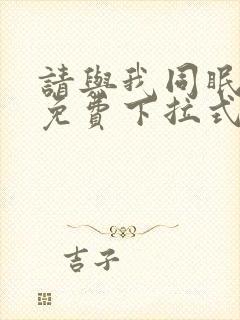 請與我同眠
免費下拉式
吉子